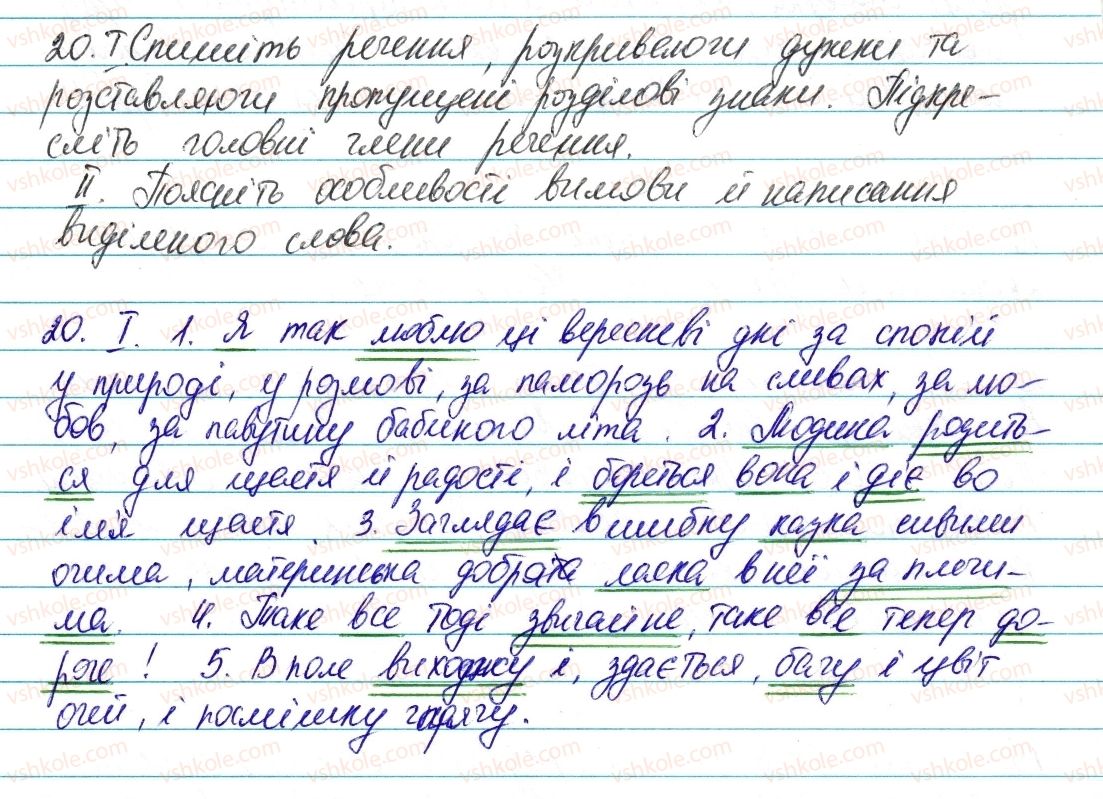 20. I Спишіть речення, розкриваючи дужки та
розставляючи пропущені розділові знаки. Підкре-
сліть головні члени речення.
II. Поясніть особливості вимови й написання
виділеного слова.
20. I. 1. Я так люблю ці вересневі дні за спокій
у природі, у розмові, за паморозь на сливах, за лю-
бов, за павутину бабиного літа. 2. Людина родить-
ся для щастя й радості, і бореться вона і діє во
ім'я щастя. 3. Заглядає в шибку казка сивими
очима, материнська добра та ласка в неї за плечи-
ма. 4. Таке все тоді звичайне, таке все тепер до-
роге! 5. В поле виходжу і, здається, бачу і цвіт
очей, і посмішку гарячу.